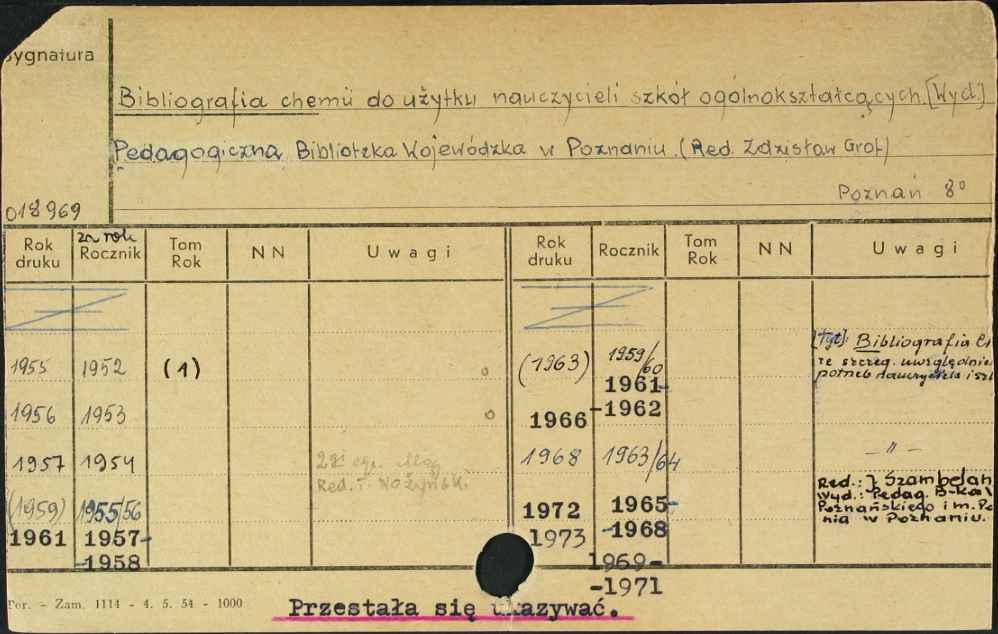 Sygnatura
Bibliografia chemii do użytku nauczycieli szkół ogólnokształcących. [Wyd.]
Pedagogiczna Biblioteka Wojewódzka w Poznaniu. (Red. Zdzisław Grot)
Poznań 8°
018969
Rok druku za rok Rocznik Tom Rok NN Uwagi Rok druku Rocznik Tom Rok NN Uwagi
1955 1952 (1)
1956 1953
1957 1954 Red. T.
(1959) 1955/56
1961 1957-
-1958
(1963) 1959/60 [Tyt.] Bibliografia
ze szczeg. uwzględnie
potrzeb nauczyciela i
1961-
1966 -1962
1968 1963/64 — " —
Red.: J. Szambelan
Wyd.: Pedag. B-ka
Poznańskiego im.
nia w Poznaniu.
1972 1965-
1973 -1968
1969-
-1971
Por. - Zam. 1114 - 4. 5. 54 - 1000
Przestała się ukazywać.